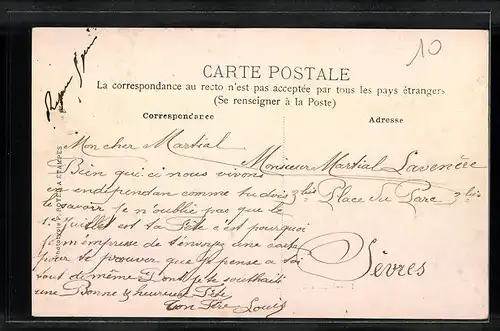 10
CARTE POSTALE
La correspondance au recto n'est pas acceptée par tous les pays étrangers
(Se renseigner à la Poste)
Correspondance
Adresse
Mon cher Martial
Bien qui ci nous vivons
en independan comme tu dois
le savoir je n'oublié pas que le
1er Juillet est ta Fête c'est pourquoi
je m'empresse de t'envoyé une carte
pour te prouver que je pense a toi
tout de même Dont je te southaite
une Bonne & heureuse Fête
ton Frère Louis
Monsieur Martial Lavenée
3 bis Place du Parc 3 bis
Sèvres